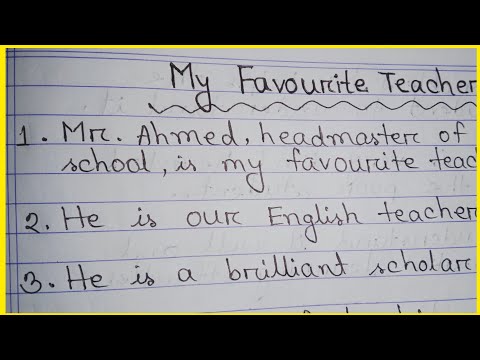 My Favourite Teacher
1. Mr. Ahmed, headmaster of
school, is my favourite teac
2. He is our English teacher
3. He is a brilliant scholar